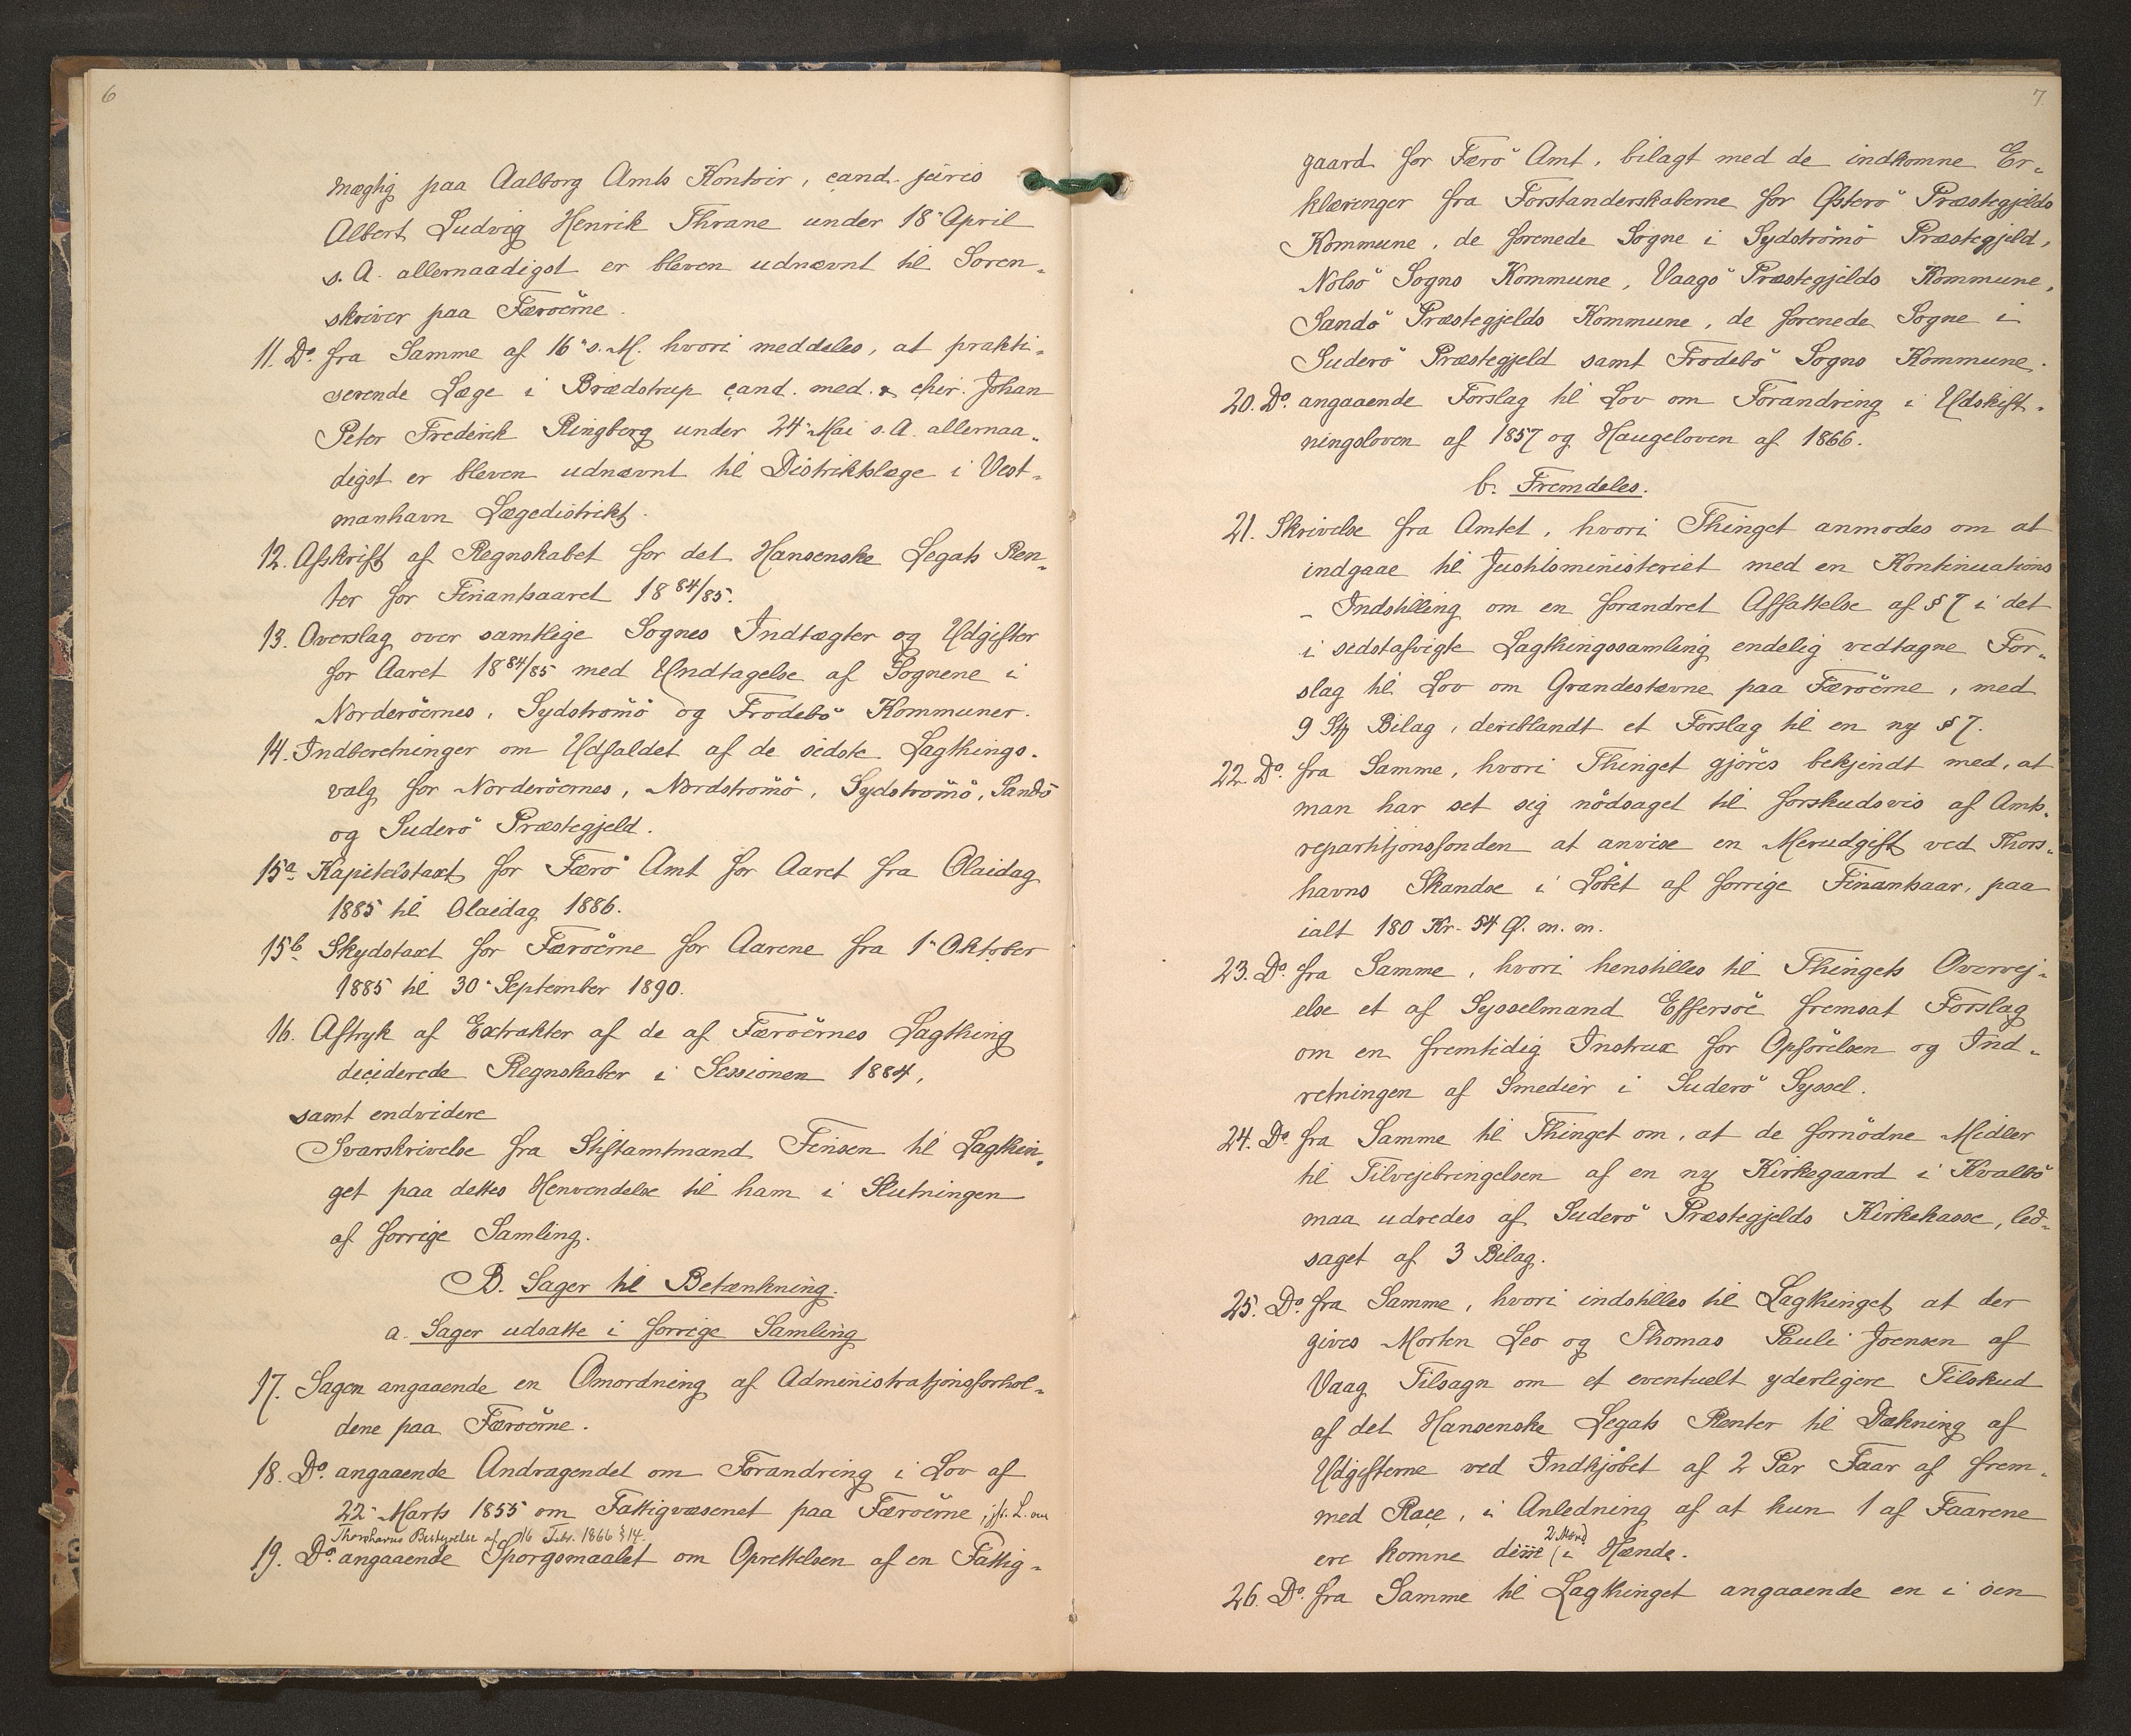 6
mægtig paa Aalborg Amts Kontoir, cand. juris
Albert Ludvig Henrik Thrane under 18 April
s. A. allernaadigst er bleven udnævnt til Soren-
skriver paa Færöerne.
11. Do. fra Samme af 16 s. M. hvori meddeles, at prakti-
serende Læge i Brædstrup cand. med. & chir. Johan
Peter Frederik Ringberg under 24 Mai s. A. allernaa-
digst er bleven udnævnt til Distriktslæge i Vest-
manhavn Lægedistrikt.
12. Afskrift af Regnskabet for det Hansenske Legats Ren-
ter for Finantsaaret 1884/85.
13. Overslag over samtlige Sognes Indtægter og Udgifter
for Aaret 1884/85 med Undtagelse af Sognene i
Norderöernes, Sydströmö og Frodebö Kommuner.
14. Indberetninger om Udfaldet af de sidste Lagthings-
valg for Norderöernes, Nordströmö, Sydströmö, Sandö
og Suderö Præstegjeld.
15a. Kapitelstaxt for Færö Amt for Aaret fra Olaidag
1885 til Olaidag 1886.
15b. Skydstaxt for Færöerne for Aarene fra 1 Oktober
1885 til 30 September 1890.
16. Aftryk af Extrakter af de af Færöernes Lagthing
deciderede Regnskaber i Sessionen 1884,
samt endvidere
Svarskrivelse fra Stiftamtmand Finsen til Lagthin-
get paa dettes Henvendelse til ham i Slutningen
af forrige Samling.
B. Sager til Betænkning.
a. Sager udsatte i forrige Samling
17. Sagen angaaende en Omordning af Administratjonsforhol-
dene paa Færöerne.
18. Do. angaaende Andragendet om Forandring i Lov af
22 Marts 1855 om Fattigvæsenet paa Færöerne, jfr. L. om
Thorshavns Bestyrelse af 16 Febr. 1866 § 14.
19. Do. angaaende Spörgsmaalet om Oprettelsen af en Fattig-
7
gaard for Færö Amt, bilagt med de indkomne Er-
klæringer fra Forstanderskaberne for Østerö Præstegjelds
Kommune, de forenede Sogne i Sydströmö Præstegjeld,
Nolsö Sogns Kommune, Vaagö Præstegjelds Kommune,
Sandö Præstegjelds Kommune, de forenede Sogne i
Suderö Præstegjeld samt Frodebö Sogns Kommune.
20. Do. angaaende Forslag til Lov om Forandring i Udskift-
ningsloven af 1857 og Haugeloven af 1866.
b. Fremdeles.
21. Skrivelse fra Amtet, hvori Thinget anmodes om at
indgaae til Justitsministeriet med en Kontinuations
- Indstilling om en forandret Affattelse af § 7 i det
i sidstafvigte Lagthingssamling endelig vedtagne For-
slag til Lov om Grandestævne paa Færöerne, med
9 Stk Bilag, deriblandt et Forslag til en ny § 7.
22. Do. fra Samme, hvori Thinget gjöres bekjendt med, at
man har set sig nödsaget til forskudsvis af Amts-
repartitjonsfonden at anvise en Merudgift ved Thors-
havns Skandse i Löbet af forrige Finantsaar, paa
ialt 180 Kr. 54 Ø. m. m.
23. Do. fra Samme, hvori henstilles til Thingets Overvej-
else et af Sysselmand Effersöe fremsat Forslag
om en fremtidig Instrux for Opförelsen og Ind-
retningen af Smedier i Suderö Syssel.
24. Do. fra Samme til Thinget om, at de fornödne Midler
til Tilvejebringelsen af en ny Kirkegaard i Kvalbö
maa udredes af Suderö Præstegjelds Kirkekasse, led-
saget af 3 Bilag.
25. Do. fra Samme, hvori indstilles til Lagthinget at der
gives Morten Leo og Thomas Pauli Joensen af
Vaag Tilsagn om et eventuelt yderligere Tilskud
af det Hansenske Legats Renter til Dækning af
Udgifterne ved Indkjöbet af 2 Par Faar af frem-
med Race, i Anledning af at kun 1 af Faarene
ere komne disse 2 Mænd i Hænde.
26. Do. fra Samme til Lagthinget angaaende en i sin